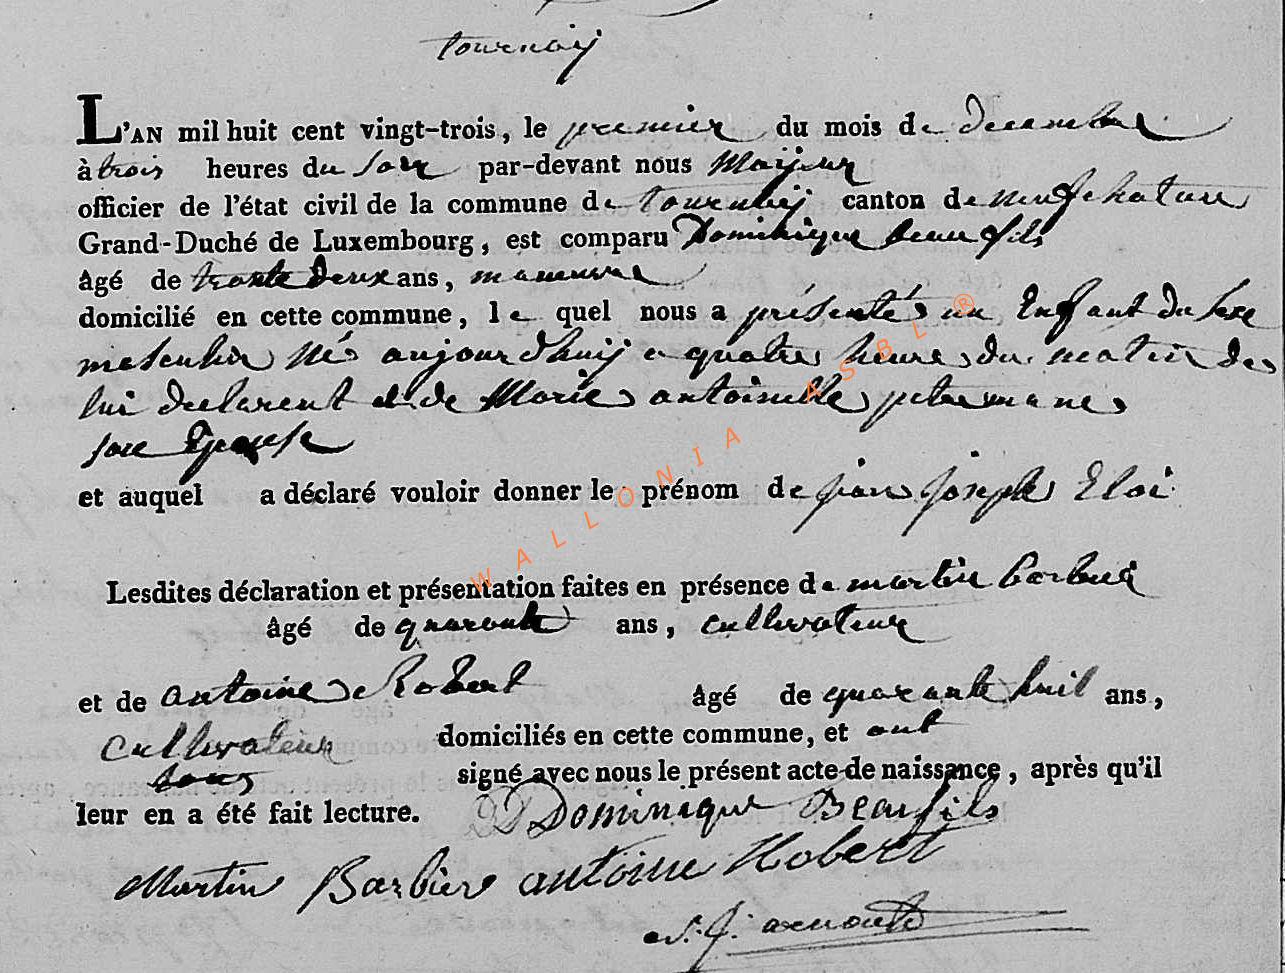 tournaij
L'AN mil huit cent vingt-trois, le premier du mois de decembre
à trois heures du soir par-devant nous Maijeur
officier de l'état civil de la commune de tournaij canton de neufchateau
Grand-Duché de Luxembourg, est comparu Dominique beaufils
âgé de trante deux ans, maneuvre
domicilié en cette commune, le quel nous a présentés un Enfant du sexe
masculin Nés aujourdhuij a quatre heure du matin de
lui declarent et de Marie antoinette petremane
son Epouse
et auquel a déclaré vouloir donner le prénom de jean joseph Eloi
Lesdites déclaration et présentation faites en présence de martin barbier
âgé de quarante ans, cultivateur
et de antoine Robert âgé de quarante huit ans,
cultivateur domiciliés en cette commune, et ont
tous signé avec nous le présent acte de naissance, après qu'il
leur en a été fait lecture. Dominique Beaufils
Martin Barbier antoine Robert
WALLONIA ASBL®